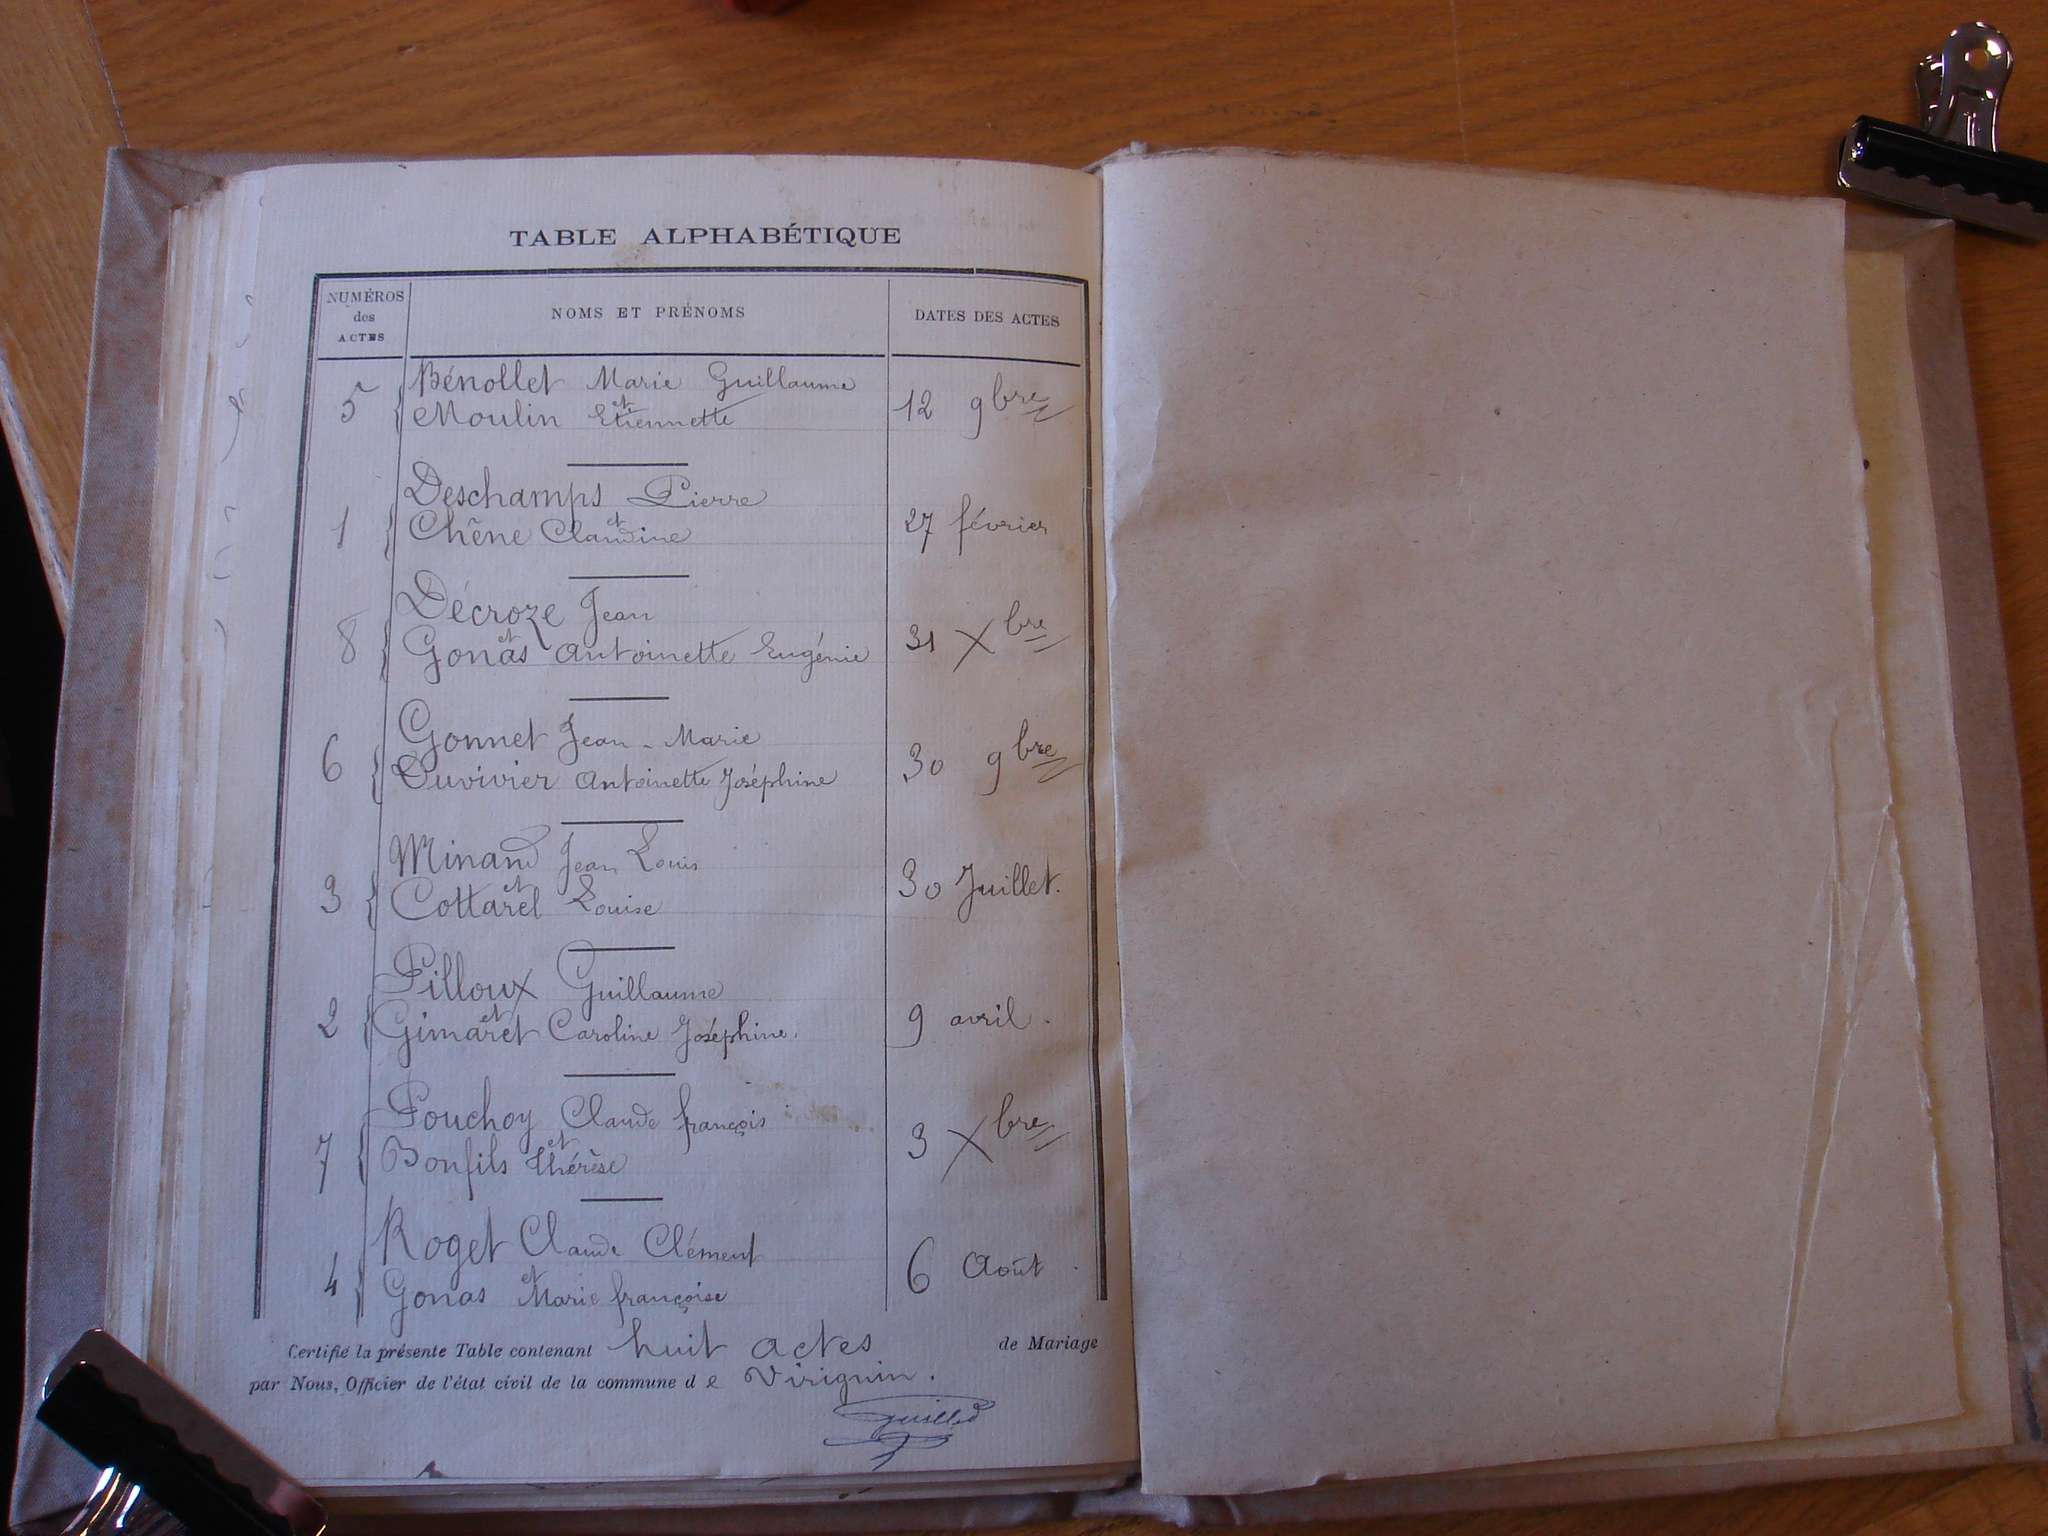 TABLE ALPHABÉTIQUE
NUMÉROS des ACTES NOMS ET PRÉNOMS DATES DES ACTES
5 Bénollet Marie Guillaume
et
Moulin Etiennette 12 9bre
1 Deschamps Pierre
et
Chêne Claudine 27 février
8 Décroze Jean
et
Gonas Antoinette Eugénie 31 Xbre
6 Gonnet Jean-Marie
Duvivier Antoinette Joséphine 30 9bre
3 Minand Jean Louis
et
Cottarel Louise 30 Juillet.
2 Pilloux Guillaume
et
Gimaret Caroline Joséphine. 9 avril.
7 Pouchoy Claude françois
et
Bonfils thérèse 3 Xbre
4 Roget Claude Clément
et
Gonas Marie françoise 6 Août
Certifié la présente Table contenant huit actes de Mariage
par Nous, Officier de l'état civil de la commune de Virignin.